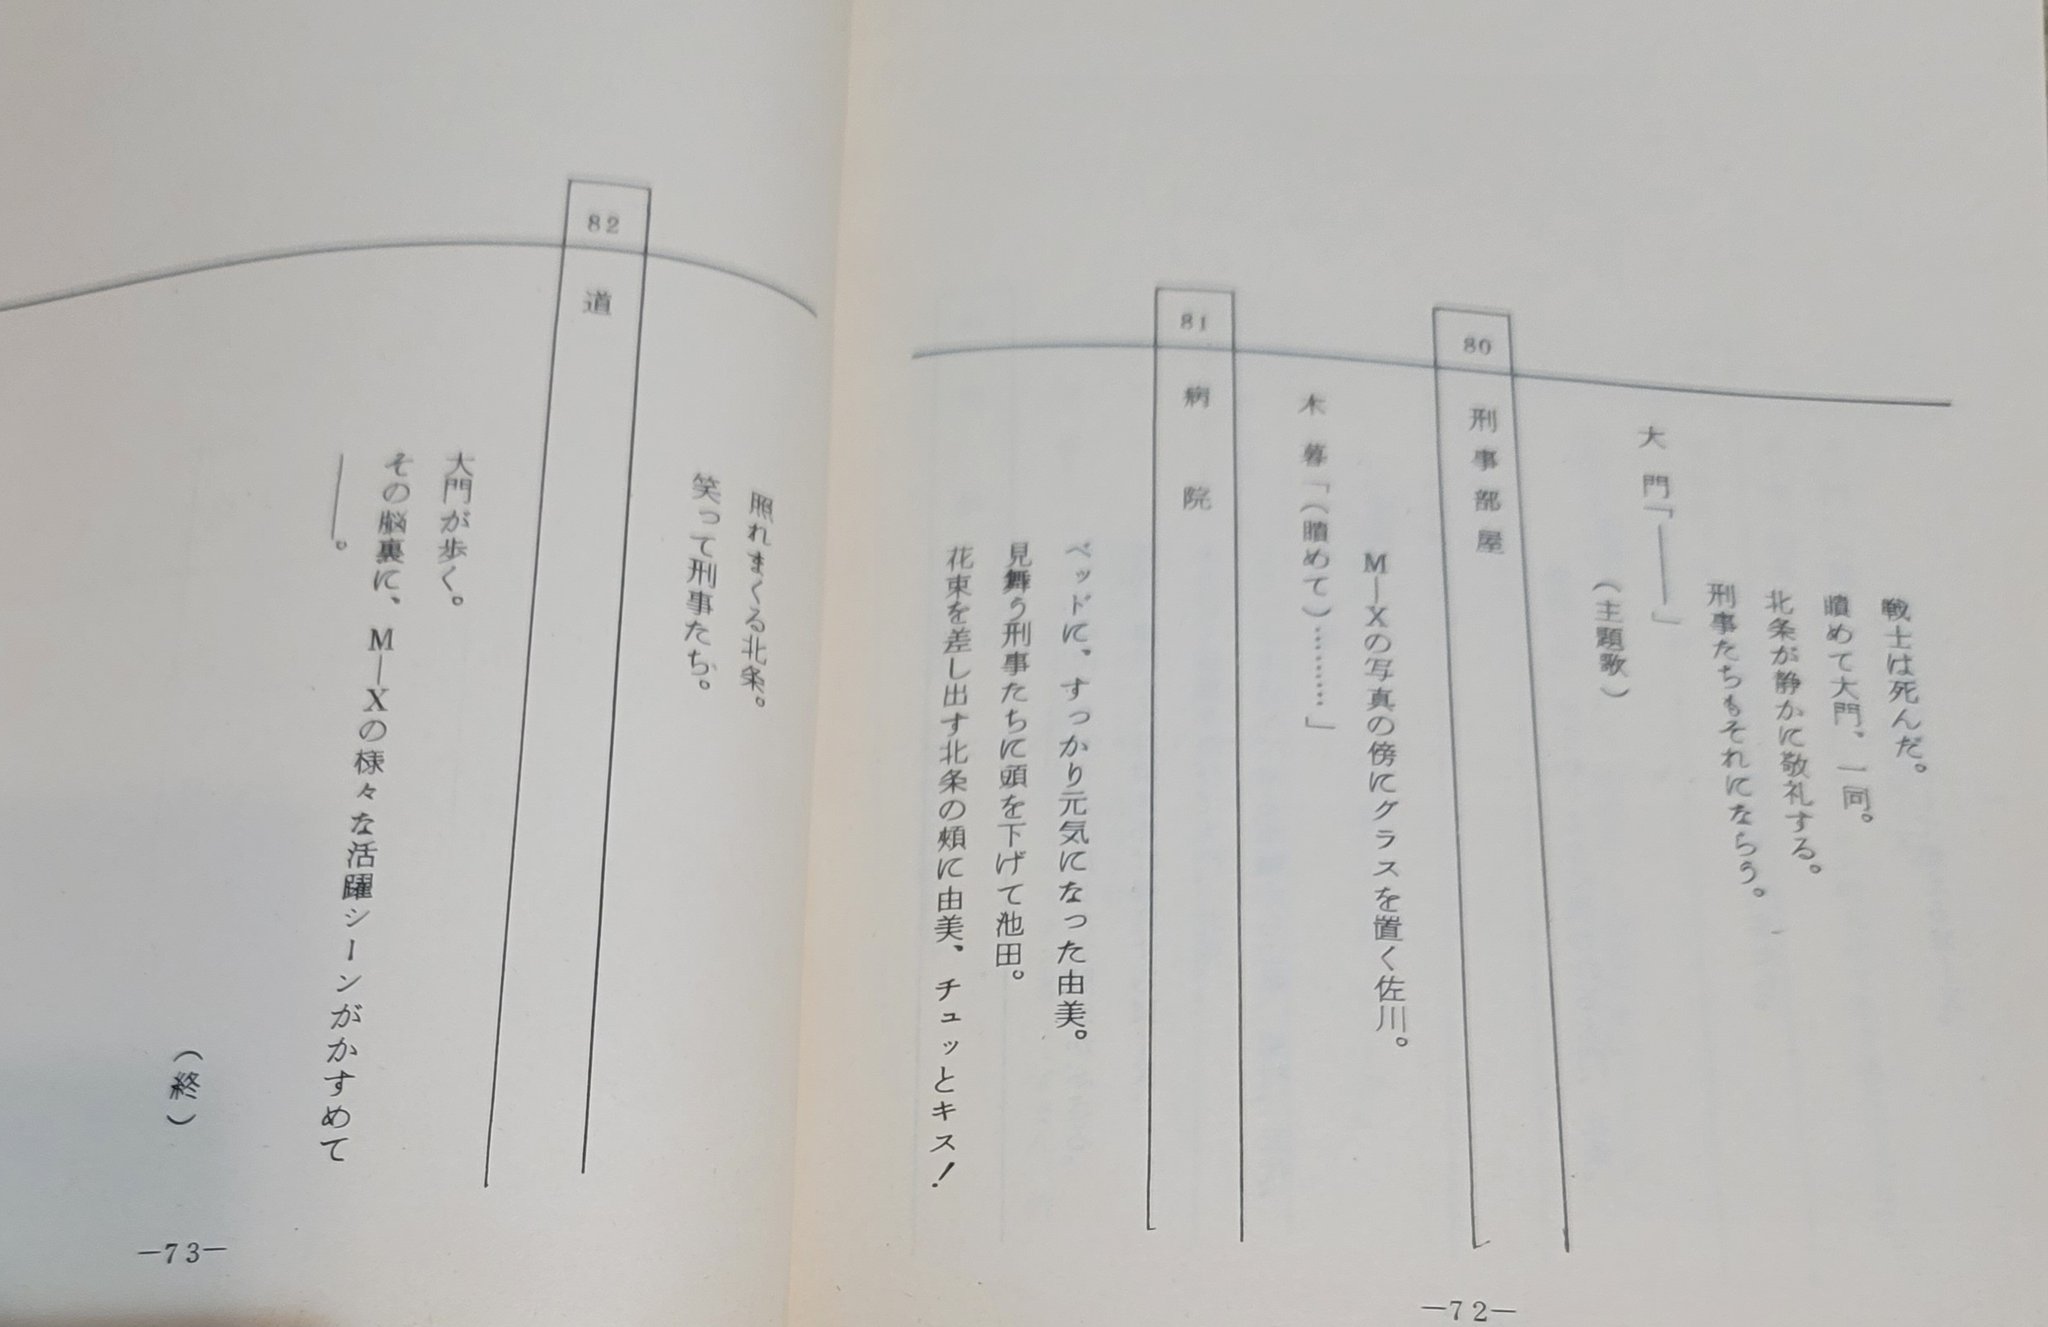 戦士は死んだ。
瞶めて大門、一同。
北条が静かに敬礼する。
刑事たちもそれにならう。
大門「――」
（主題歌）
80 刑事部屋
M―Xの写真の傍にグラスを置く佐川。
木暮「（瞶めて）………」
81 病院
ベッドに、すっかり元気になった由美。
見舞う刑事たちに頭を下げて池田。
花束を差し出す北条の頬に由美、チュッとキス！
―72―
照れまくる北条。
笑って刑事たち。
82 道
大門が歩く。
その脳裏に、M―Xの様々な活躍シーンがかすめて
――。
（終）
―73―